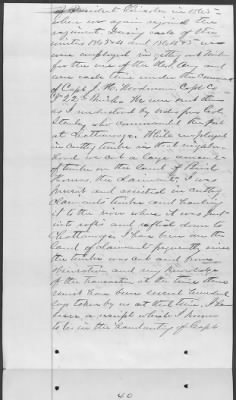 of President Lincoln in 1865
when we again rejoined the
regiment. During each of the
winters 1863-4 and 1864-5 we
was employed in getting out timber
for the use of the U.S. Army and
was each time under the Command
of Capt J. W. Woodman Capt Co
22 Michs. We were sent there
as I understood by order from Col
Stanley who commanded the post
at Chattanooga. While employed
in cutting timber in that neighbor
hood we cut a large amount
of timber on the land of
the Claimant. I was
present and assisted in cutting
Claimants timber and hauling
it to the river where it was put
into rafts and rafted down to
Chattanooga. I have been on the
land of claimant frequently since
the timber was cut and from
observation and my knowledge
of the transaction at the time there
must have been several hundred
logs taken by us at that time. I
have a receipt which I know
to be in the handwriting of Capt
40